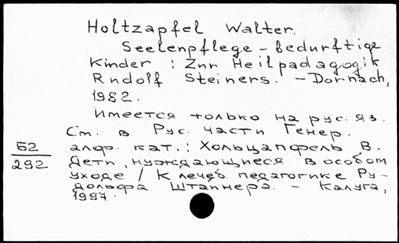 Holtzapfel Walter.
Seelenpflege - bedurftige
Kinder : Znr Heilpadagogik
Rndolf Steiners. - Dornach,
1982.
Имеется только на рус. яз.
См. в Рус. части Генер.
алф. кат.: Хольцапфель В.
Дети, нуждающиеся в особом
уходе / К лечеб. педагогике Ру-
дольфа Штайнера. - Калуга,
1997.
Б2
292